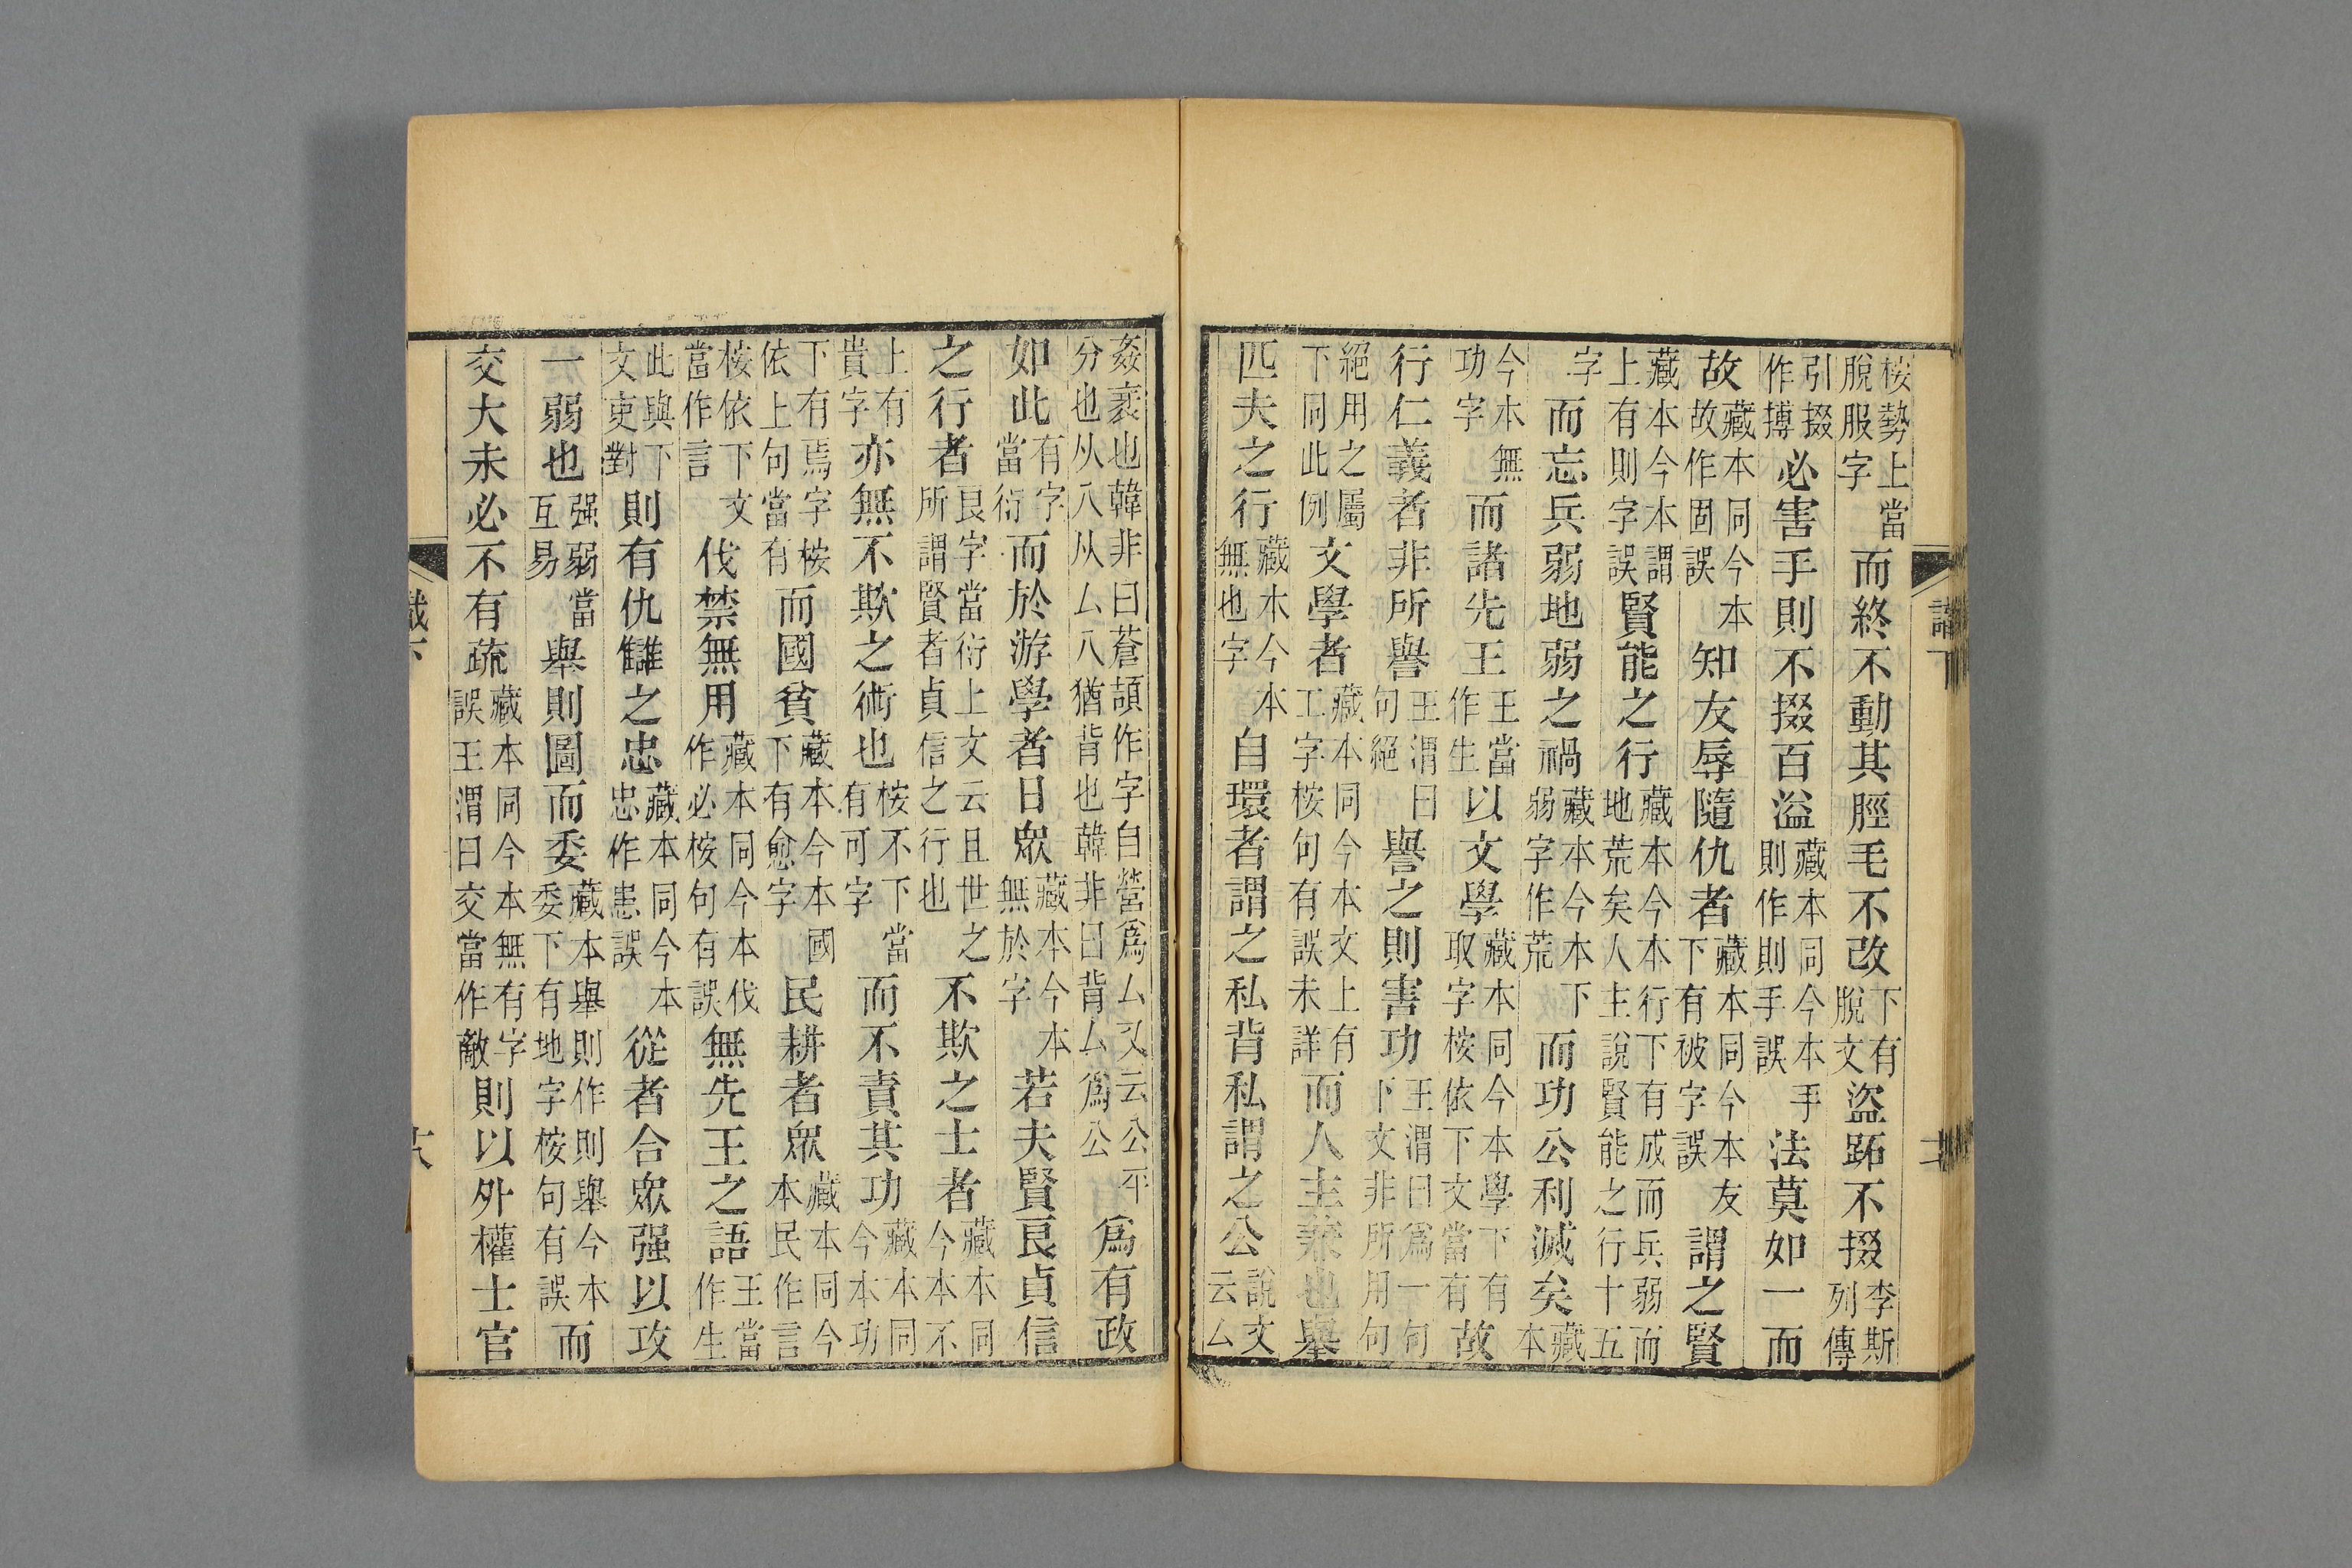 桉勢上當脫服字而終不動其脛毛不改下有脫文盜跖不掇李斯列傳
引掇作搏必害手則不掇百溢藏本同今本手則作則手誤法莫如一而
故藏本同今本故作固誤知友辱隨仇者藏本同今本友下有被字誤謂之賢
藏本今本謂上有則字誤賢能之行藏本今本行下有成而兵弱而地荒矣人主說賢能之行十五
字而忘兵弱地弱之禍藏本今本下弱字作荒而功公利滅矣藏本
今本無功字而諸先王王當作生以文學藏本同今本學下有取字桉依下文當有故
行仁義者非所譽王渭曰句絕譽之則害功王渭曰爲一句下文非所用句
絕用之屬下同此例文學者藏本同今本文上有工字桉句有誤未詳而人主兼也舉
匹夫之行藏本今本無也字自環者謂之私背私謂之公說文云厶
姦衺也韓非曰蒼頡作字自營爲厶又云公平分也从八从厶八猶背也韓非曰背厶爲公爲有政
如此有字當衍而於游學者日衆藏本今本無於字若夫賢良貞信
之行者良字當衍上文云且世之所謂賢者貞信之行也不欺之士者藏本同今本不
上有貴字亦無不欺之術也桉不下當有可字而不責其功藏本同今本功
下有焉字桉依上句當有而國貧藏本今本國下有愈字民耕者衆藏本同今本民作言
桉依下文當作言伐禁無用藏本同今本伐作必桉句有誤無先王之語王當作生
此與下文吏對則有仇讎之忠藏本同今本忠作患誤從者合衆强以攻
一弱也强弱當互易舉則圖而委藏本舉則作則舉今本委下有地字桉句有誤而
交大未必不有疏藏本同今本無有字誤王渭曰交當作敵則以外權士官
識下